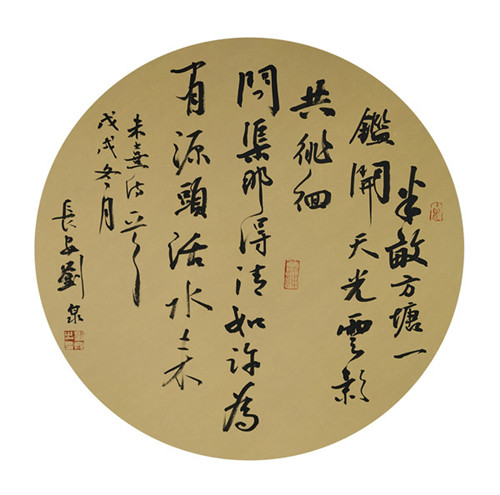 半畝方塘一
鑑開天光雲影
共徘徊
問渠那得清如許為
有源頭活水来
朱熹诗
戊戌冬月
長安劉泉